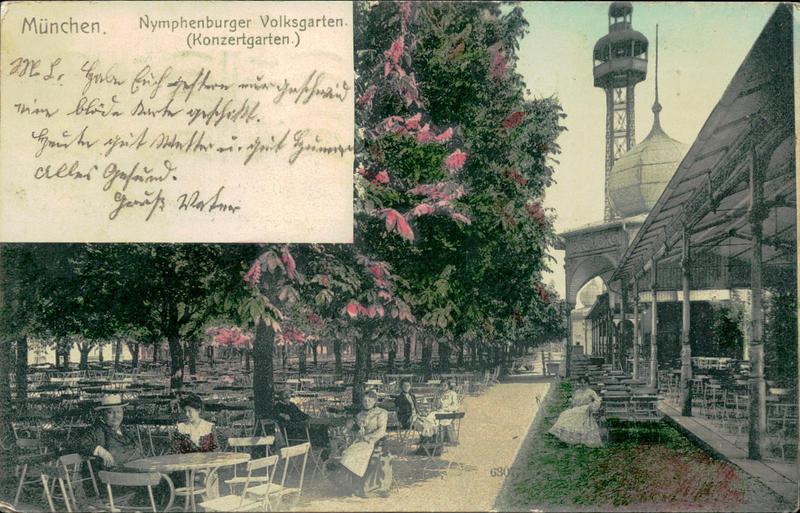 München. Nymphenburger Volksgarten.
(Konzertgarten.)
M. L. Habe Euch gestern nur
eine blöde Karte geschickt.
Heute gut Wetter u. gut
Alles Gesund.
Gruß Vater
630